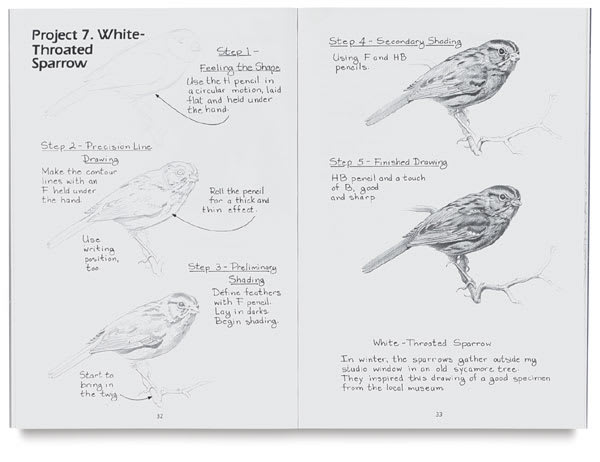 Project 7. White-
Throated
Sparrow
Step 1 -
Feeling the Shape
Use the H pencil in
a circular motion, laid
flat and held under
the hand.
Step 2 - Precision Line
Drawing
Make the contour
lines with an
F held under
the hand.
Roll the pencil
for a thick and
thin effect.
Use
writing
position,
too.
Step 3 - Preliminary
Shading
Define feathers
with F pencil.
Lay in darks.
Begin shading.
Start to
bring in
the twig.
32
Step 4 - Secondary Shading
Using F and HB
pencils.
Step 5 - Finished Drawing
HB pencil and a touch
of B, good
and sharp
White-Throated Sparrow
In winter, the sparrows gather outside my
studio window in an old sycamore tree.
They inspired this drawing of a good specimen
from the local museum.
33